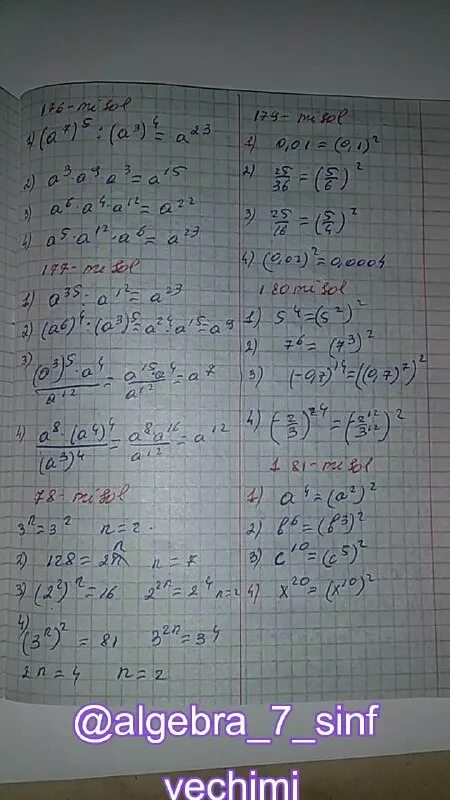 176-misol
1) (a⁷)⁵ : (a³)⁴ = a²³
2) a³·a⁹·a³ = a¹⁵
3) a⁶·a⁴·a¹² = a²²
4) a⁵·a¹²·a⁶ = a²³
177-misol
1) a³⁵ : a¹² = a²³
2) (a⁶)⁴ : (a³)⁵ = a²⁴ : a¹⁵ = a⁹
3) (a³)⁵·a⁴/a¹² = a¹⁵a⁴/a¹² = a⁷
4) a⁸·(a⁴)⁴/(a³)⁴ = a⁸a¹⁶/a¹² = a¹²
78-misol
3ⁿ=3² n=2.
2) 128 = 2ⁿ n = 7
3) (2²)ⁿ = 16 2²ⁿ = 2⁴ n=2
4) (3ⁿ)² = 81 3²ⁿ = 3⁴
2n = 4 n = 2
179-misol
1) 0,01 = (0,1)²
2) 25/36 = (5/6)²
3) 25/16 = (5/4)²
4) (0,02)² = 0,0004
180misol
1) 5⁴ = (5²)²
2) 7⁶ = (7³)²
3) (-0,7)¹⁴ = ((0,7)⁷)²
4) (-2/3)²⁴ = (-2¹²/3¹²)²
181-misol
1) a⁴ = (a²)²
2) b⁶ = (b³)²
3) c¹⁰ = (c⁵)²
4) x²⁰ = (x¹⁰)²
@algebra_7_sinf
vechimi